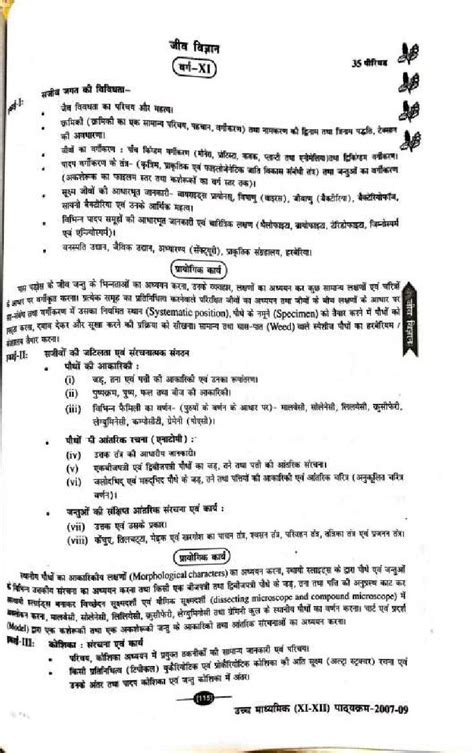 जीव विज्ञान
वर्ग-XI
35 पीरियड
सजीव जगत की विविधता–
इकाई-I:
• जैव विवधता का परिचय और महत्व।
• क्रमिकी (क्रमिकी का एक सामान्य परिचय, पहचान, वर्गीकरण) तथा नामकरण की द्विनाम तथा त्रिनाम पद्धति, टेक्सान
की अवधारणा।
• जीवों का वर्गीकरण : पाँच किंग्डम वर्गीकरण (मोनेरा, प्रोटिस्टा, कवक, प्लान्टी तथा एनीमेलिया)तथा द्विकिंग्डम वर्गीकरण।
• पादप वर्गीकरण के तंत्र- (कृत्रिम, प्राकृतिक एवं फाइलोजेनेटिक जाति विकास संबंधी तंत्र) तथा जन्तुओं का वर्गीकरण
(अकशेरूक का फाइलम स्तर तथा कशेरूकों का वर्ग स्तर तक)।
• सूक्ष्म जीवों की आधारभूत जानकारी- वायराइड्स प्रायोनस्, विषाणु (वाइरस), जीवाणु (बैक्टीरिया), बैक्टेरियोफॉज,
सायनो बैक्टीरिया एवं उनके आर्थिक महत्व।
• विभिन्न पादप समूहों की आधारभूत जानकारी एवं चारित्रिक लक्षण (थैलोफाइटा, ब्रायोफाइटा, टेरिडोफाइटा, जिम्नोस्पर्म
एवं एन्जियोस्पर्म)।
• वनस्पति उद्यान, जैविक उद्यान, अभ्यारण्य (सेंक्टूएरी), प्राकृतिक संग्रहालय, हरबेरिया।
प्रायोगिक कार्य
पास पड़ोस के जीव जन्तु के भिन्नताओं का अध्ययन करना, उनके व्यवहार, लक्षणों का अध्ययन कर कुछ सामान्य लक्षणों एवं चरित्रों
के आधार पर वर्गीकृत करना। प्रत्येक समूह का प्रतिनिधित्व करनेवाले परिरक्षित जीवों का अध्ययन तथा जीवों के बीच लक्षणों के आधार पर
संबंध तथा वर्गीकरण में उसका नियमित स्थान (Systematic position), पौधे के नमूने (Specimen) को तैयार करने में पौधों को
करना, दबाव देकर और सुखा करने की प्रक्रिया को सीखना। सामान्य तथा घास-पात (Weed) वाले स्पेशीज पौधों का हरबेरियम /
तैयार करना।
जीव विज्ञान
इकाई-II: सजीवों की जटिलता एवं संरचनात्मक संगठन
• पौधों की आकारिकी :
(i) जड़, तना एवं पत्ती की आकारिकी एवं उनका रूपांतरण।
(ii) पुष्पक्रम, पुष्प, फल तथा बीज की आकारिकी।
(iii) विभिन्न फैमिली का वर्णन- (पुष्पों के वर्णन के आधार पर)- मालवेसी, सोलेनेसी, लिलयेसी, क्रुसीफेरी,
लेग्युमिनेसी, कम्पोसीटी, ग्रेमेनी (पोएसी)।
• पौधों की आंतरिक रचना (एनाटोमी) :
(iv) उत्तक तंत्र की आधारीय जानकारी।
(v) एकबीजपत्री एवं द्विबीजपत्री पौधों का जड़, तने तथा पत्ती की आंतरिक संरचना।
(vi) जलोद्भिद् एवं मरूद्भिद् पौधे के जड़, तने तथा पत्तियों की आकारिकी एवं आंतरिक चरित्र (अनुकूलित चरित्र
वर्णन)।
• जन्तुओं की संक्षिप्त आंतरिक संरचना एवं कार्य :
(vii) उत्तक एवं उसके प्रकार।
(viii) केंचुए, तिलचट्टा, मेढ़क एवं खरगोश का पाचन तंत्र, श्वसन तंत्र, परिवहन तंत्र, तंत्रिका तंत्र एवं प्रजनन तंत्र।
प्रायोगिक कार्य
स्थानीय पौधों का आकारिकीय लक्षणों (Morphological characters) का अध्ययन करना, स्थायी स्लाइड्स के द्वारा पौधे एवं जन्तुओं
के विभिन्न उत्तकीय संरचना का अध्ययन करना तथा किसी एक बीजपत्री तथा द्विबीजपत्री पौधे के जड़, तना तथा पत्ति की अनुप्रस्थ काट कर
स्लाइड्स बनाकर विच्छेदन सूक्ष्मदर्शी एवं यौगिक सूक्ष्मदर्शी (dissecting microscope and compound microscope) में
अवलोकन करना, मालवेसी, सोलेनेसी, लिलियेसी, क्रुसीफेरी, लेग्युमिनेसी तथा ग्रेमिनी कुल के स्थानीय पौधों का वर्णन करना। चार्ट एवं प्रादर्श
(Model) द्वारा एक कशेरूकी तथा एक अकशेरूकी जन्तु के आकारिकी तथा आंतरिक संरचनाओं का अध्ययन करना।
इकाई-III: कोशिका : संरचना एवं कार्य
• परिचय, कोशिका अध्ययन में प्रयुक्त तकनीकों की सामान्य जानकारी एवं परिचय।
• किसी प्रतिनिधित्व (टिपीकल) युकैरियोटिक एवं प्रोकैरियोटिक कोशिका की अति सूक्ष्म (अल्ट्रा स्ट्रक्चर) रचना एवं
उनके अंतर तथा पादप कोशिका एवं जन्तु कोशिका में अंतर।
[115]
उच्च माध्यमिक (XI-XII) पाठ्यक्रम-2007-09